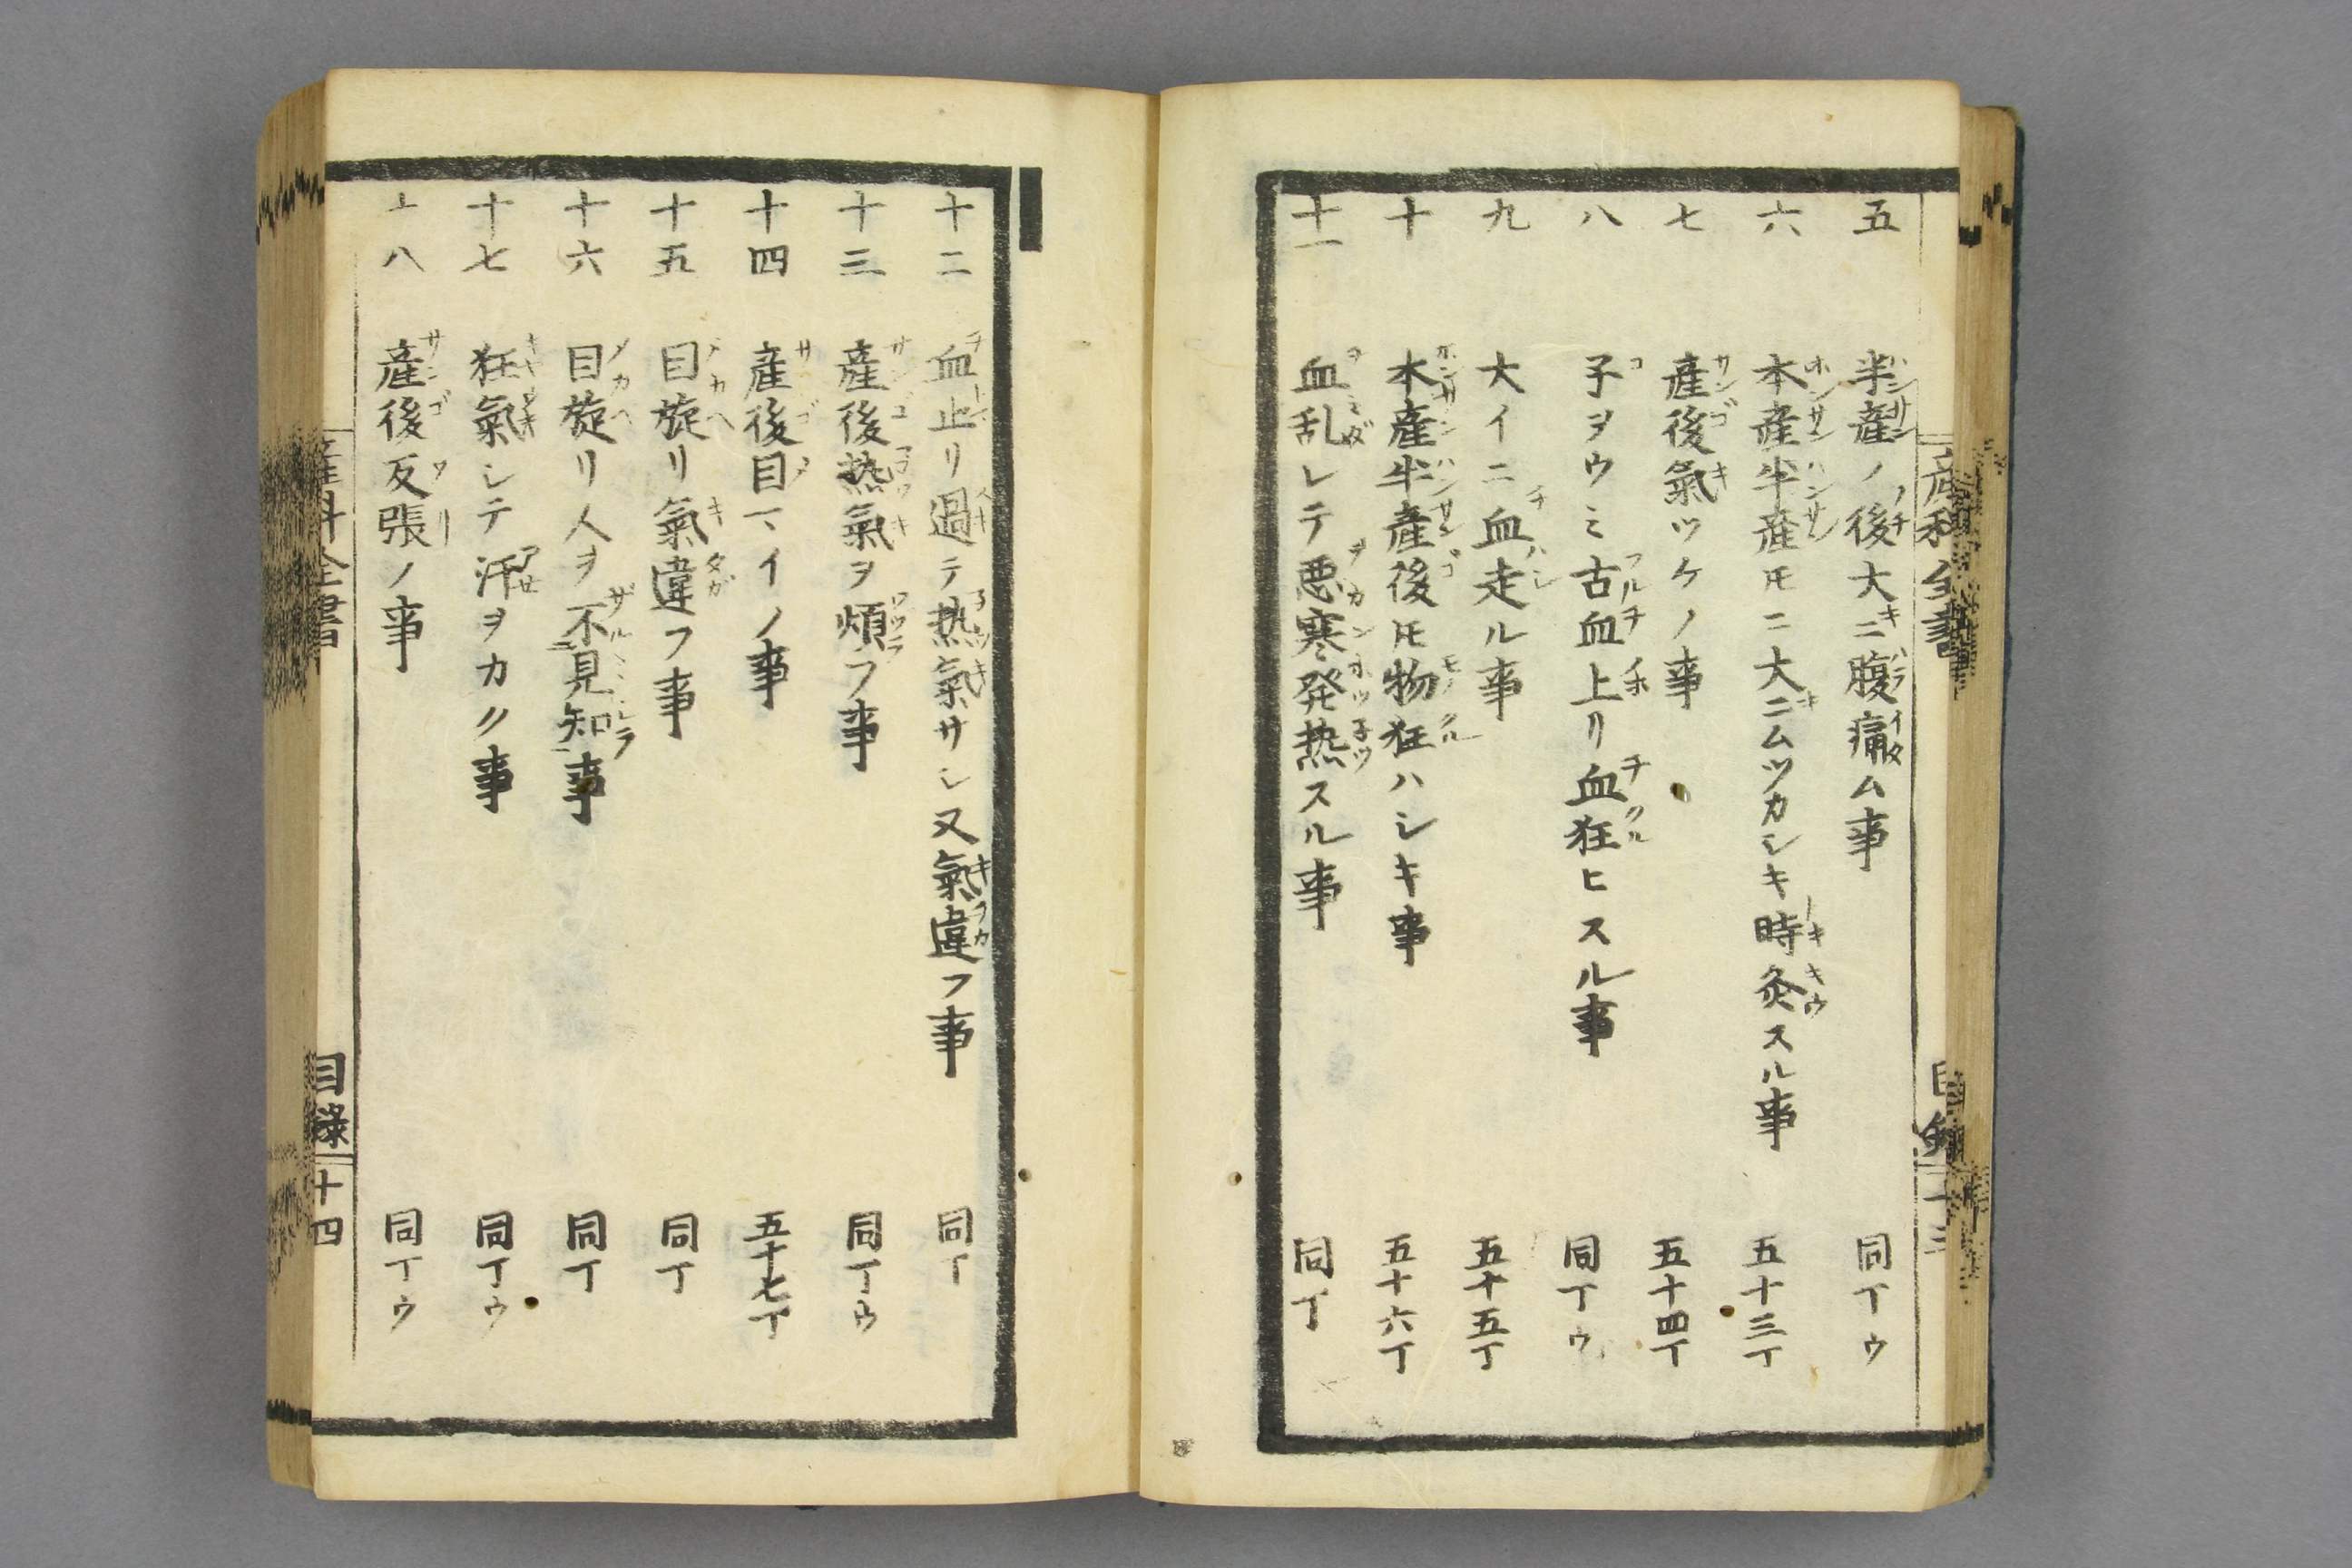 産科全書 目録 十三
五 半産ノ後大ニ腹痛ム事 同丁ウ
六 本産半産𪜈ニ大ニムツカシキ時灸スル事 五十三丁
七 産後氣ツケノ事 五十四丁
八 子ヲウミ古血上リ血狂ヒスル事 同丁ウ
九 大イニ血走ル事 五十五丁
十 本産半産後𪜈物狂ハシキ事 五十六丁
十一 血乱レテ悪寒発热スル事 同丁
十二 血止リ過テ热氣サシ又氣違フ事 同丁
十三 産後热氣ヲ煩フ事 同丁ウ
十四 産後目マイノ事 五十七丁
十五 目旋リ氣違フ事 同丁
十六 目旋リ人ヲ不見知事 同丁
十七 狂氣シテ汗ヲカク事 同丁ウ
十八 産後反張ノ事 同丁ウ
産科全書 目録 十四